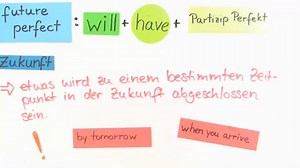 future perfect : will + have + Partizip Perfekt
Zukunft
→ etwas wird zu einem bestimmten Zeit-
punkt in der Zukunft abgeschlossen
sein.
! by tomorrow when you arrive